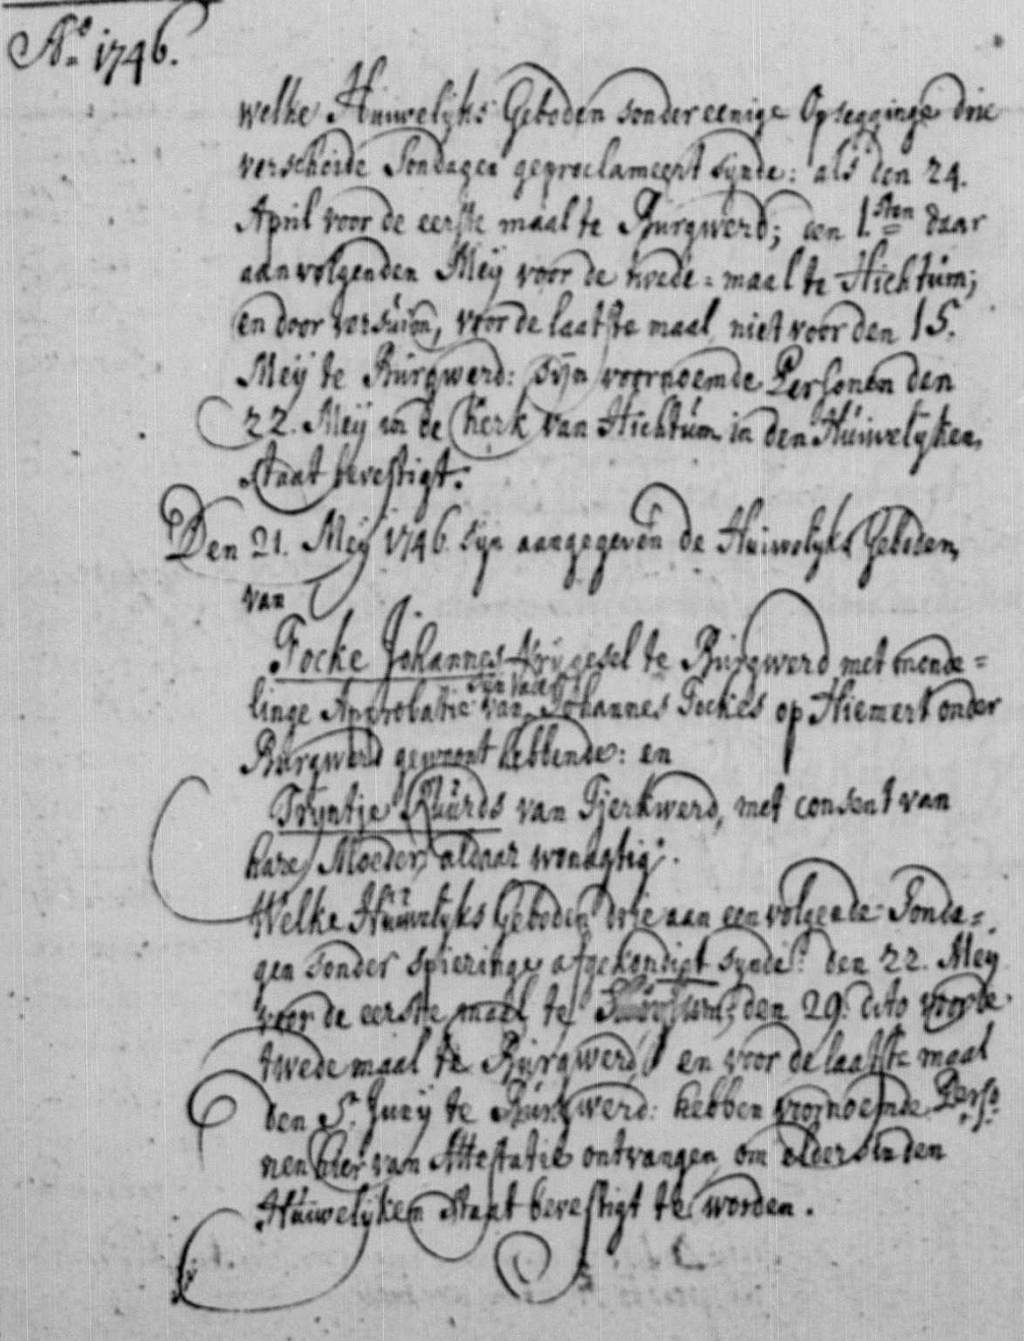 Ao. 1746.
welke Huiwelijks Geboden sonder eenige Opsegginge drie
verscheide Sondagen geproclameert synde: als den 24.
April voor de eerste maal te Burgwerd; den 1.sten daar
aanvolgenden Meij voor de twede = maal te Hichtum;
en door versuim, voor de laatste maal niet voor den 15.
Meij te Burgwerd: sijn voornoemde Personen den
22. Meij in de Kerk van Hichtum in den Huiwelyken
staat bevestigt.
Den 21. Meij 1746. sijn aangegeven de Huiwelyks Geboden,
van
Focke Johannes Frijgesel te Burgwerd met monde =
sijn Vader
linge Approbatie van Johannes Fockes op Hiemert onder
Burgwerd gewoont hebbende: en
Tryntje Ruurds van Tjerkwerd, met consent van
hare Moeder, aldaar wonagtig.
Welke Huwelyks Geboden drie aan een volgende Sonda =
gen sonder spieringe afgekondigt synde: den 22. Meij
voor de eerste maal te den 29. dito voor de
twede maal te Burgwerd en voor de laatste maal
den 5. Junij te Burgwerd: hebben voornoemde Perso
nen hier van Attestatie ontvangen om elders in den
Huiwelyken staat bevestigt te worden.